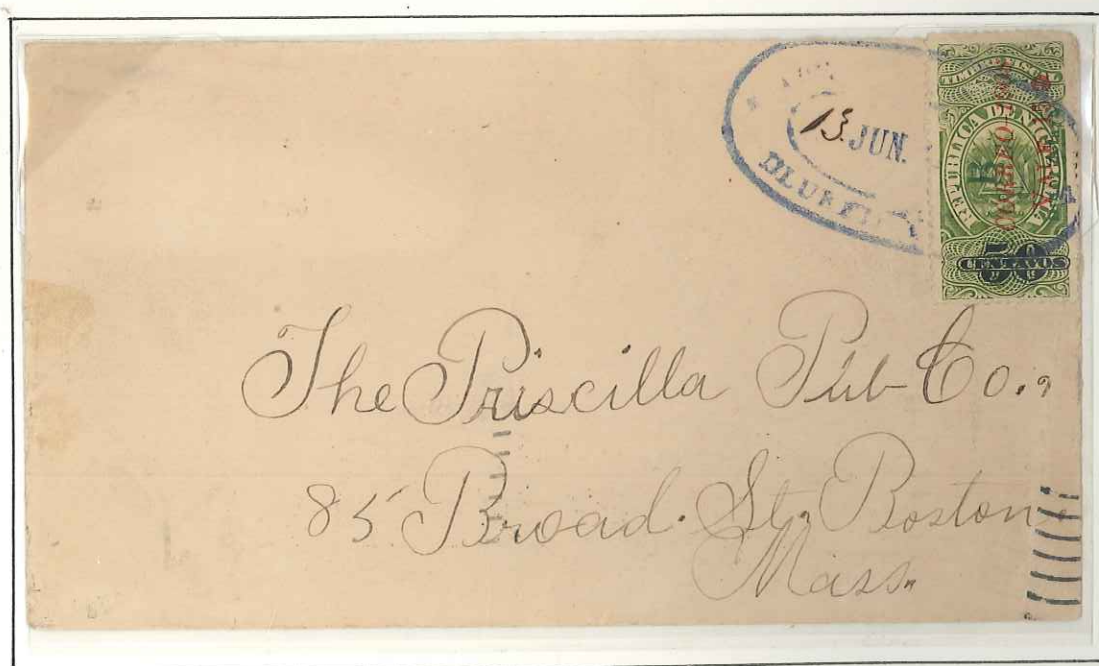 13 JUN.
BLUEFI
TIMBRE FISCAL
REPUBLICA DE NICARAGUA
B
CORREO
50
CENTAVOS
The Priscilla Pub-Co.,
85 Broad. St. Boston
Mass.